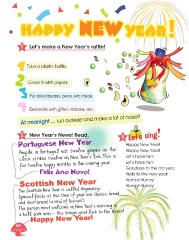 HAPPY NEW YEAR!
1 Let's make a New Year's rattle!
1 Take a plastic bottle.
2 Cover it with papers.
3 Put dried beans, peas, etc inside.
4 Decorate with glitter, ribbons, etc.
At midnight ... run outside and make a lot of noise!!
2 New Year's News! Read.
Portuguese New Year
People in Portugal eat twelve grapes as the
clock strikes twelve on New Year's Eve. This is
for twelve happy months in the coming year.
Feliz Ano Novo!
Scottish New Year
The Scottish New Year is called Hogmanay.
Special foods at this time of year are cheese, bread
and shortbread (a kind of biscuit).
The first person most welcome on New Year's morning is
a tall dark man – this brings good luck to the house!
Happy New Year!
3 Let's sing!
Happy New Year!
Happy New Year!
Let's have fun!
Let's have fun!
Goodbye to the old year,
Hello to the new year!
Hurray! Hurray!
Hurray! Hurray!